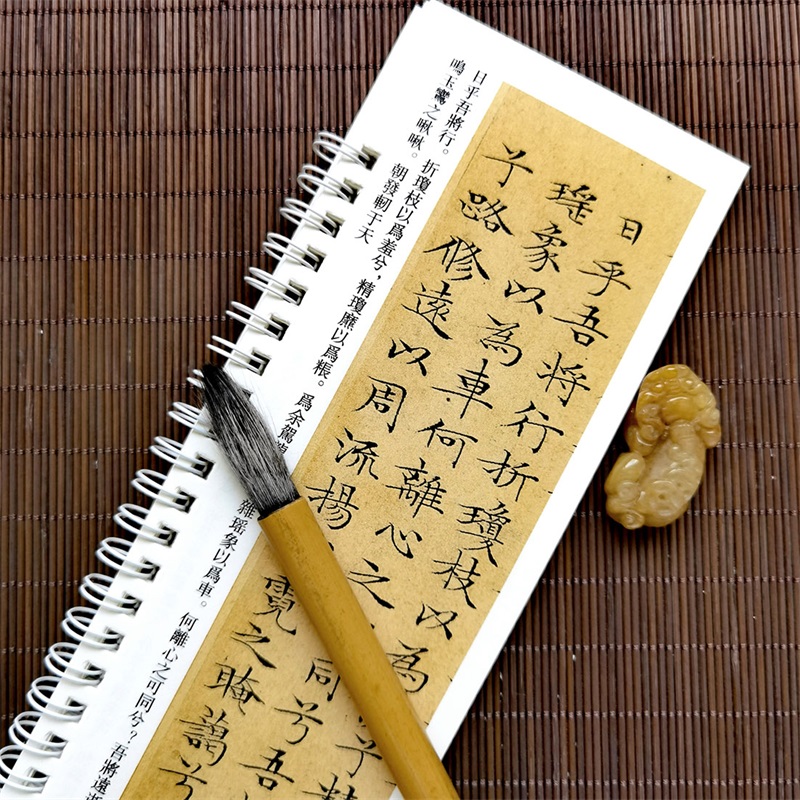 日乎吾將行。折瓊枝以爲羞兮，精瓊靡以爲粻。爲余駕
雜瑶象以爲車。何離心之可同兮？吾將遠
鳴玉鸞之啾啾。朝發軔于天
日乎吾将行折瓊枝以為兮精
瑶象以為車何離心之同兮吾
兮路脩遠以周流揚霓之晻藹兮